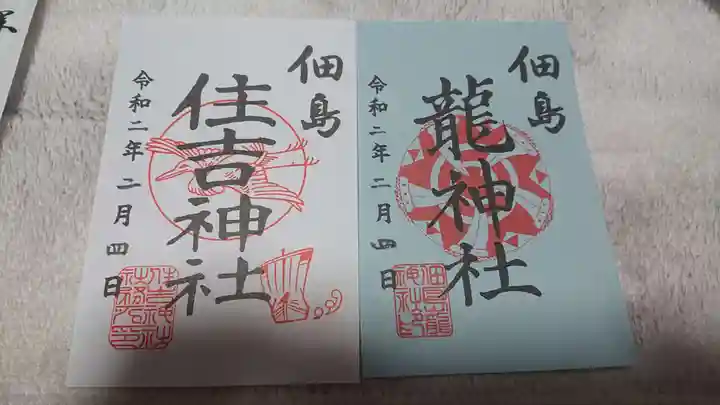 佃島
住吉神社
令和二年二月四日
佃島
龍神社
令和二年二月四日